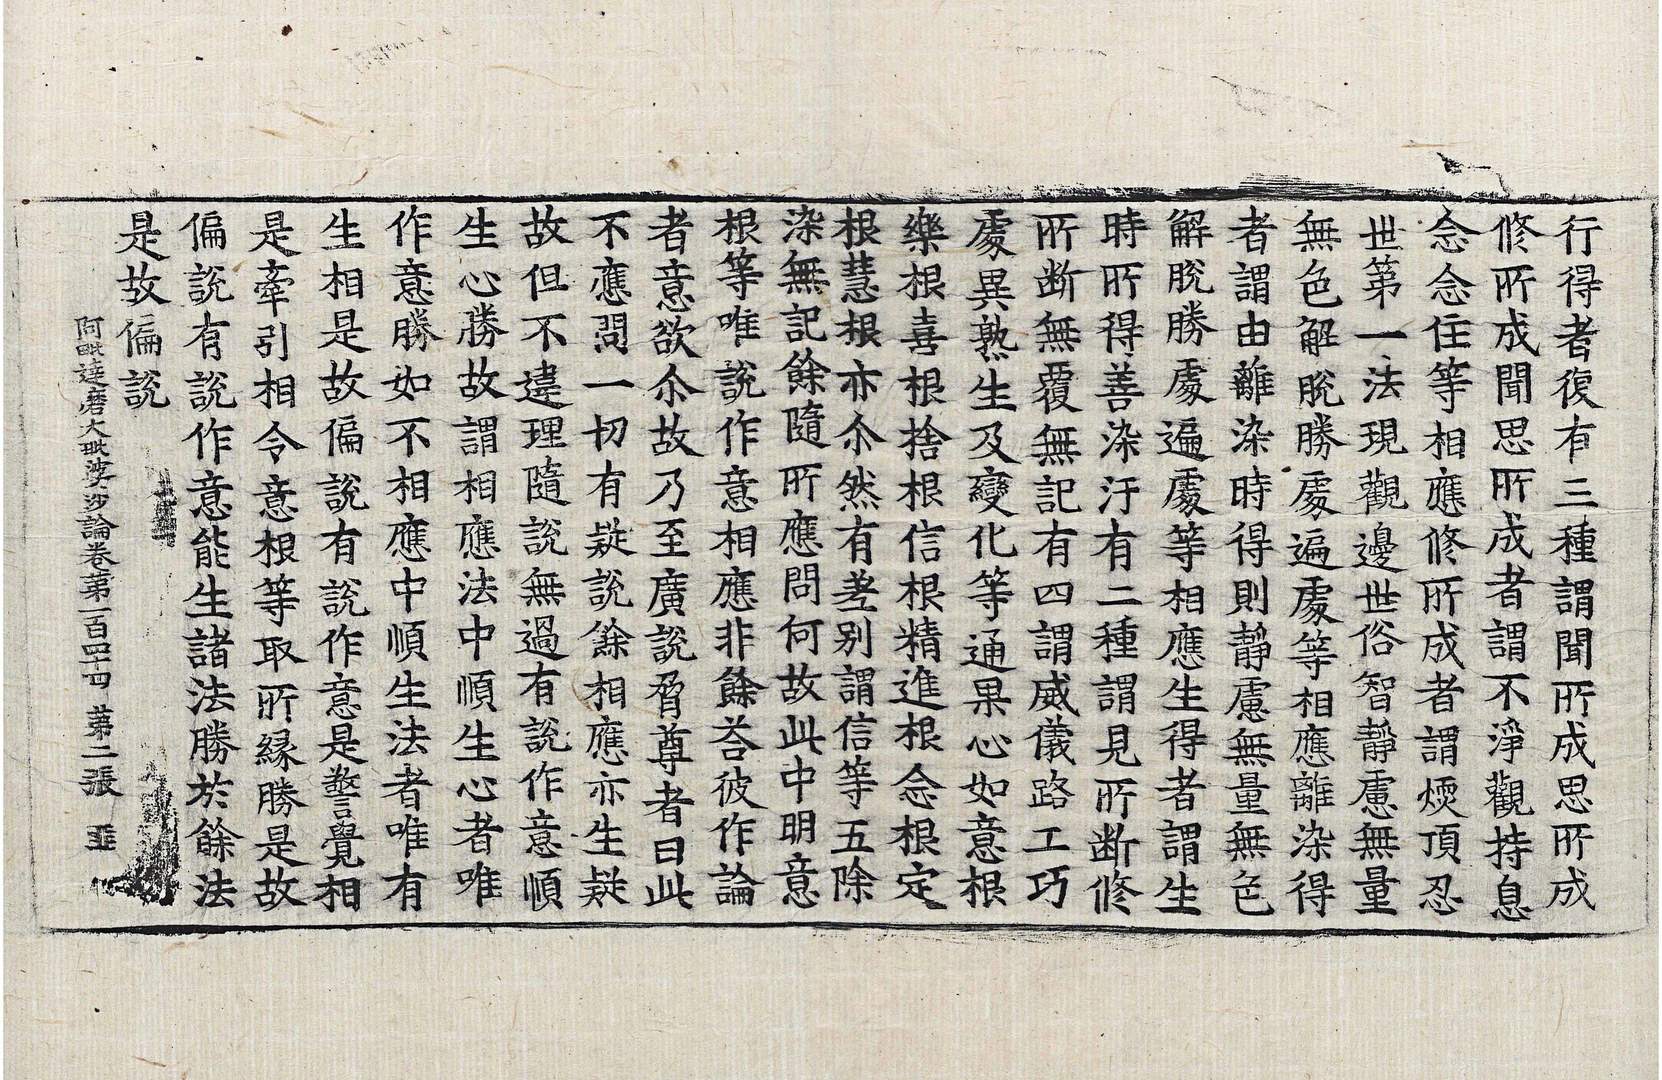 行得者復有三種謂聞所成思所成
修所成聞思所成者謂不淨觀持息
念念住等相應修所成者謂煗頂忍
世第一法現觀邊世俗智靜慮無量
無色解脫勝處遍處等相應離染得
者謂由離染時得則靜慮無量無色
解脫勝處遍處等相應生得者謂生
時所得善染汙有二種謂見所斷修
所斷無覆無記有四謂威儀路工巧
處異熟生及變化等通果心如意根
樂根喜根捨根信根精進根念根定
根慧根亦尒然有差別謂信等五除
染無記餘隨所應問何故此中明意
根等唯說作意相應非餘荅彼作論
者意欲尒故乃至廣說脅尊者曰此
不應問一切有疑說餘相應亦生疑
故但不違理隨說無過有說作意順
生心勝故謂相應法中順生心者唯
作意勝如不相應中順生法者唯有
生相是故偏說有說作意是警覺相
是牽引相令意根等取所緣勝是故
偏說有說作意能生諸法勝於餘法
是故偏說
阿毗達磨大毗婆沙論卷第一百四十四 第二張